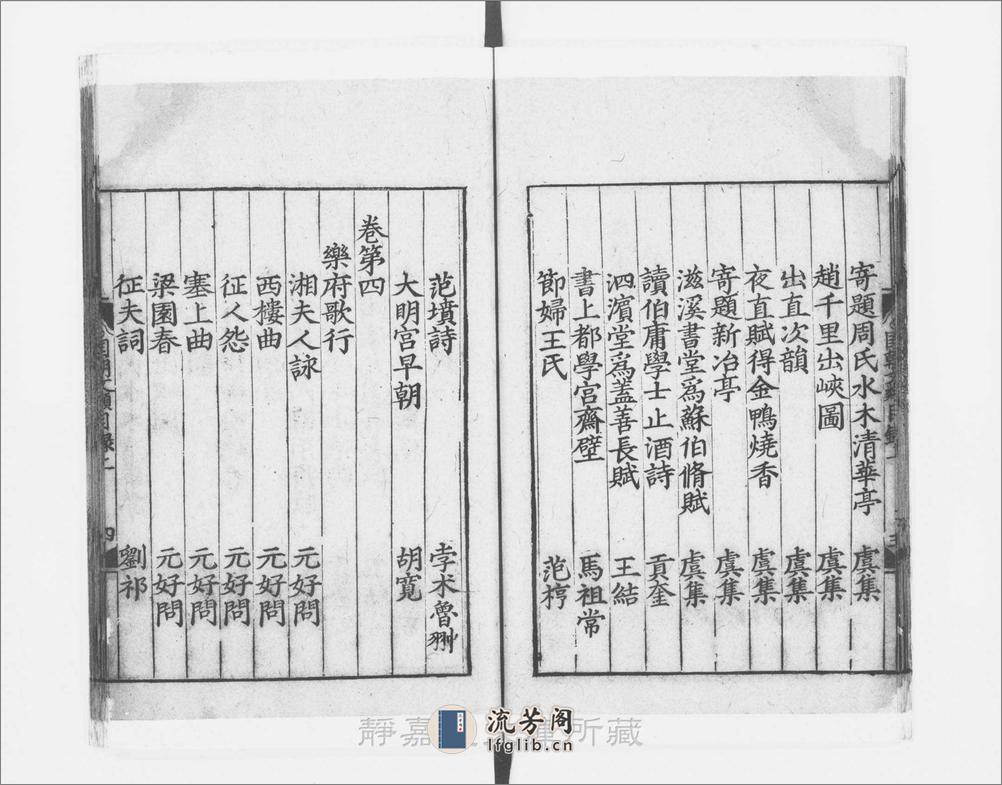 寄題周氏水木清華亭 虞集
趙千里出峽圖 虞集
出直次韻 虞集
夜直賦得金鴨燒香 虞集
寄題新冶亭 虞集
滋溪書堂爲蘇伯脩賦 虞集
讀伯庸學士止酒詩 貢奎
泗濱堂爲蓋善長賦 王結
書上都學宮齋壁 馬祖常
節婦王氏 范梈
范墳詩 孛术魯翀
大明宮早朝 胡寬
卷第四
樂府歌行
湘夫人詠 元好問
西樓曲 元好問
征人怨 元好問
塞上曲 元好問
梁園春 元好問
征夫詞 劉祁
四
流芳阁
lfglib.cn
靜嘉 所藏